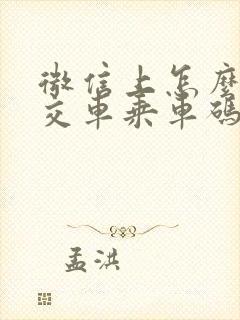 微信上怎麼
交車乘車碼
孟洪